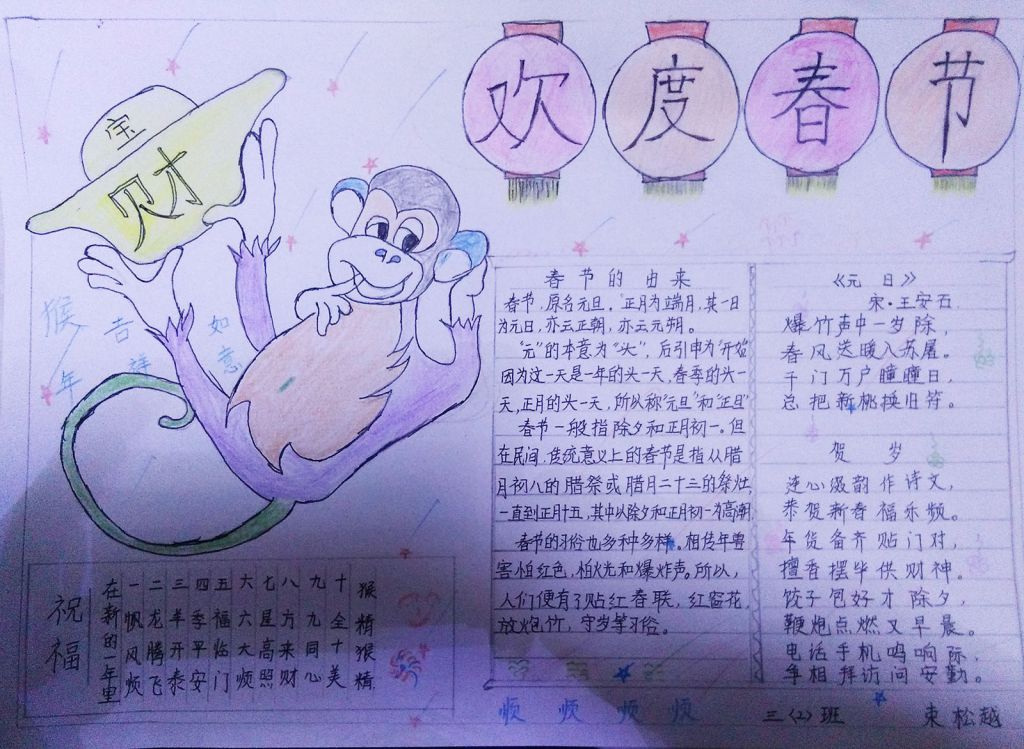 欢度春节
宝
财
猴年
吉祥
如意
春节的由来
春节,原名元旦,正月为端月,其一日
为元日,亦云正朝,亦云元朔。
“元”的本意为“头”,后引申为“开始”
因为这一天是一年的头一天,春季的头一
天,正月的头一天,所以称“元旦”和“正旦”
春节一般指除夕和正月初一。但
在民间,传统意义上的春节是指从腊
月初八的腊祭或腊月二十三的祭灶,
一直到正月十五,其中从除夕和正月初一为高潮
春节的习俗也多种多样。相传年兽
害怕红色,怕火光和爆炸声。所以,
人们便有了贴红春联,红窗花,
放炮竹,守岁等习俗。
《元日》
宋·王安石
爆竹声中一岁除,
春风送暖入苏屠。
千门万户曈曈日,
总把新桃换旧符。
贺岁
连心缀韵作诗文,
恭贺新春福乐频。
年货备齐贴门对,
擅香摆华供财神。
饺子包好才除夕,
鞭炮点燃又早晨。
电话手机鸣响际,
争相拜访问安勤。
祝福
在新的一年里
一帆风顺
二龙腾飞
三羊开泰
四季平安
五福临门
六六大顺
七星高照
八方来财
九九同心
十全十美
猴精猴精
顺 顺 顺 顺
三〈2〉班 束松越